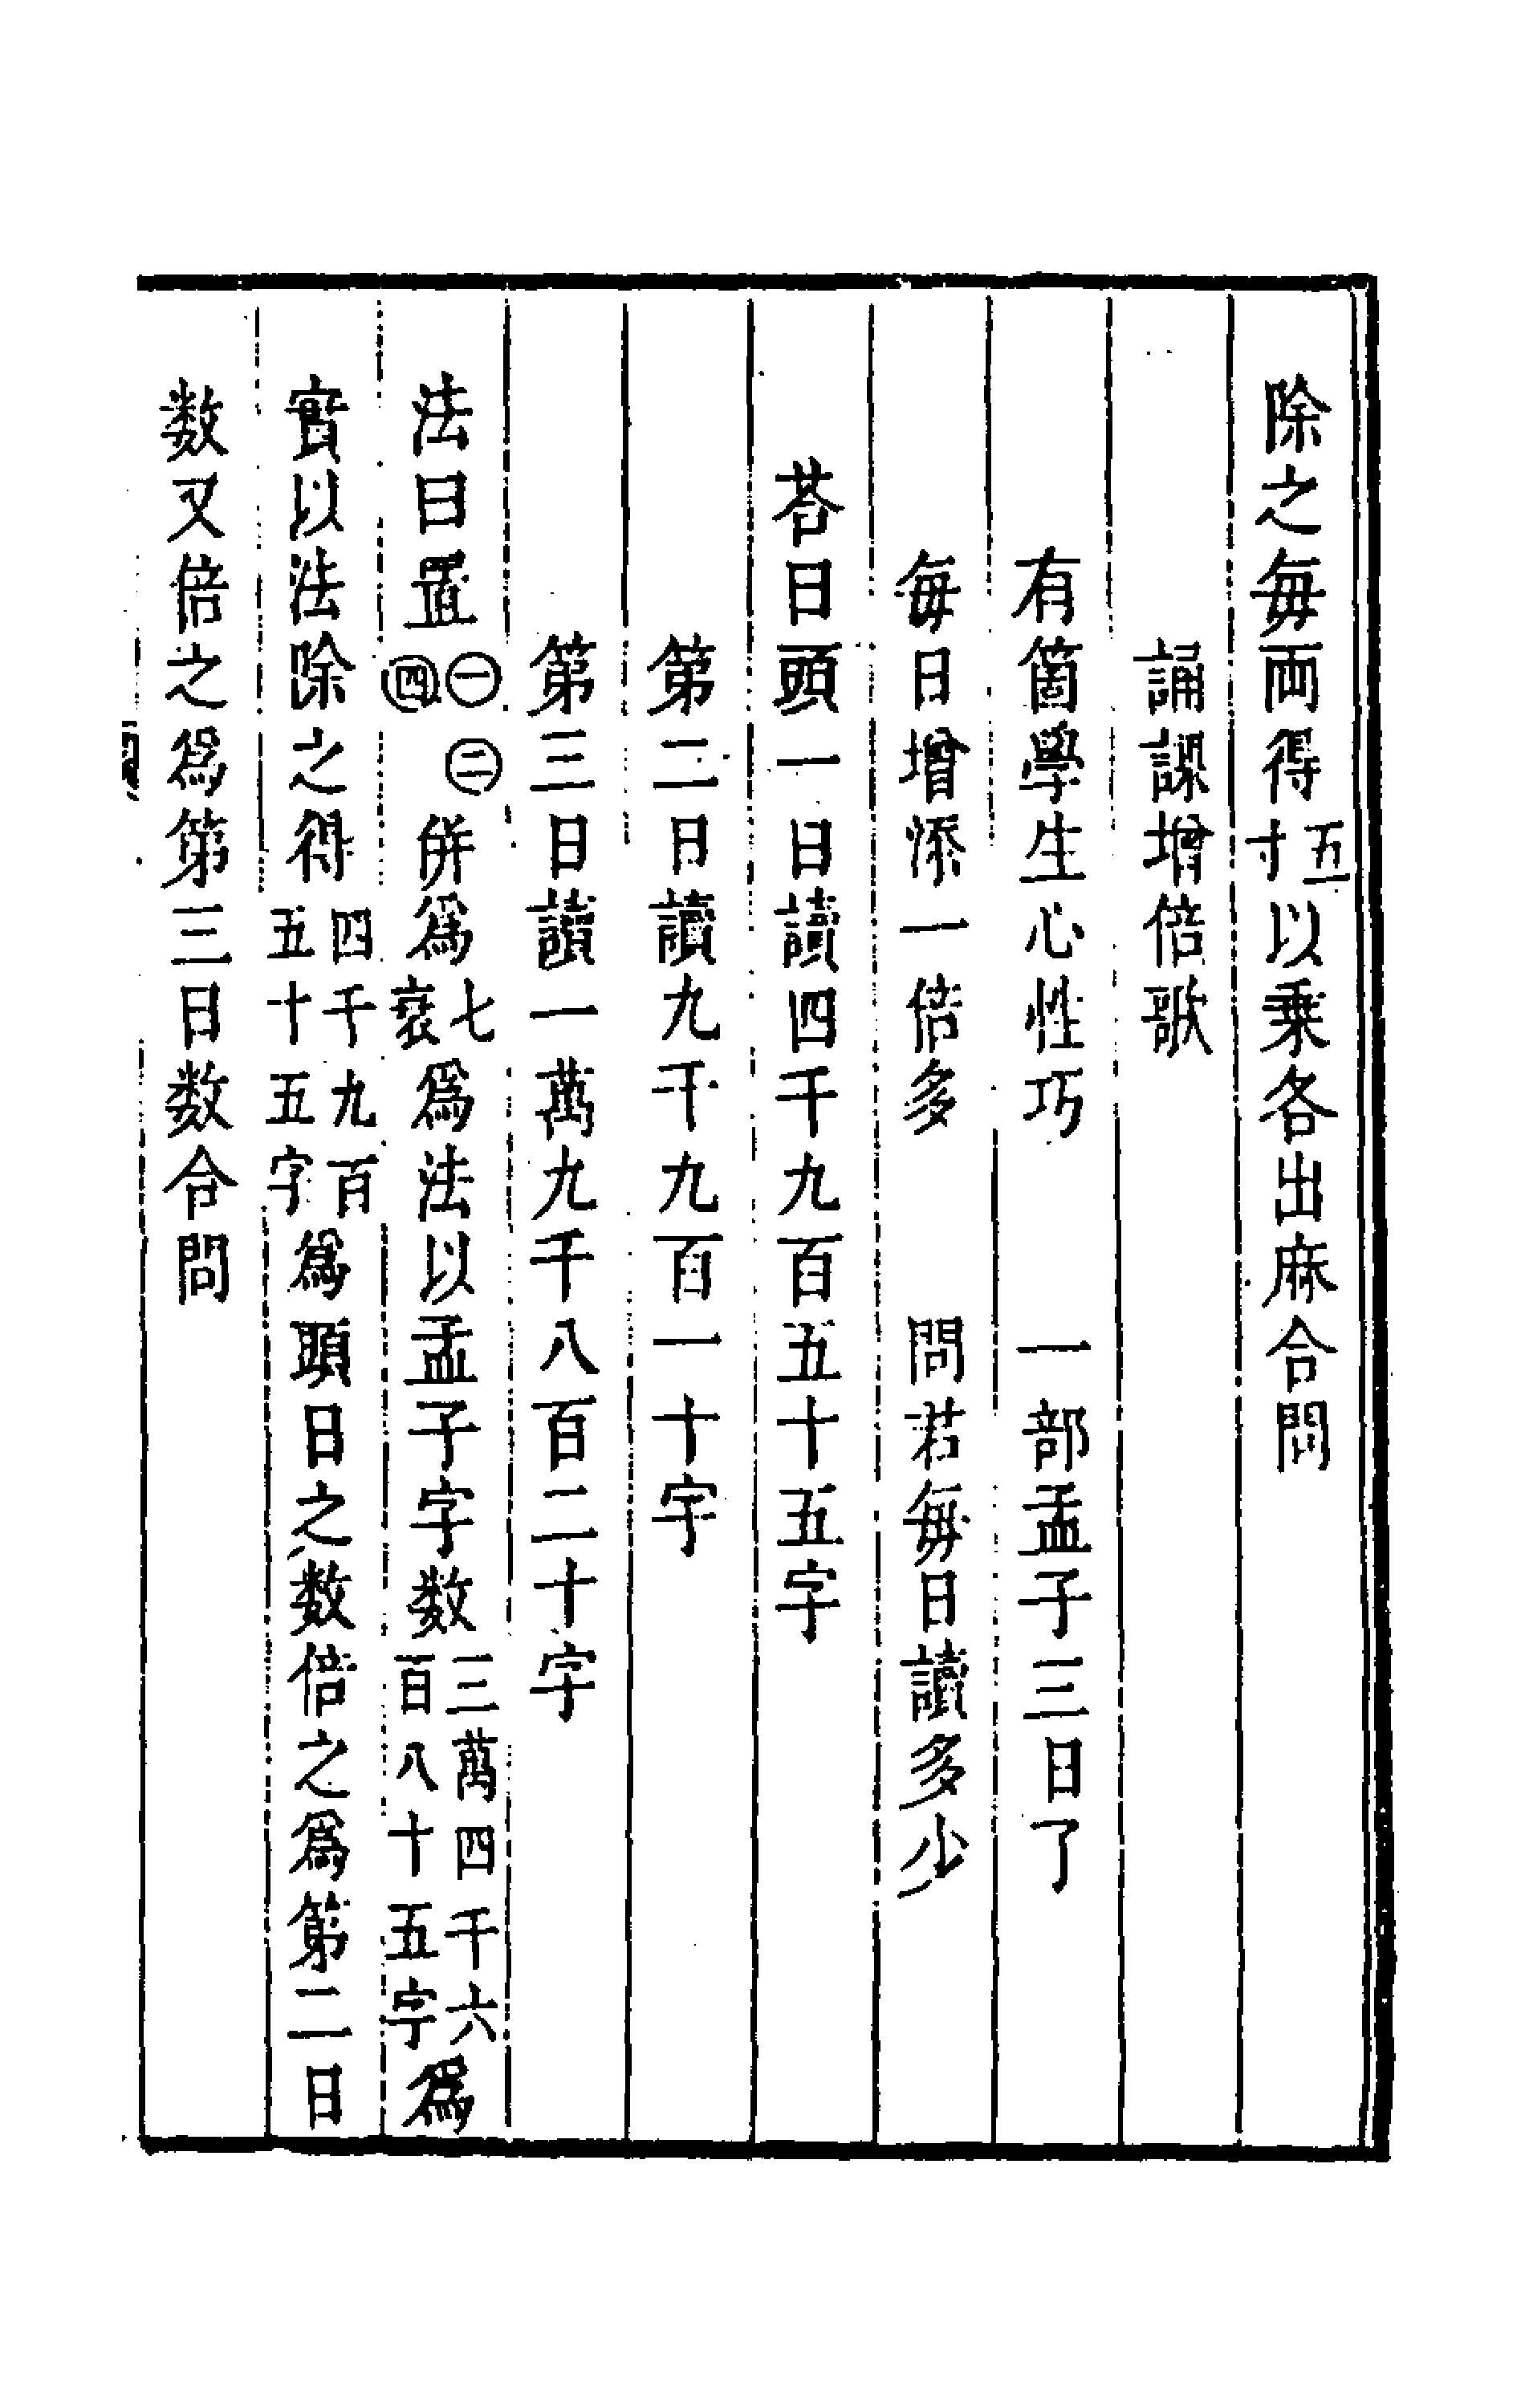 除之每両得五寸以乗各出麻合問
誦課增倍歌
有箇學生心性巧　一部孟子三日了
每日增添一倍多　問若每日讀多少
荅曰頭一日讀四千九百五十五字
第二日讀九千九百一十字
第三日讀一萬九千八百二十字
法曰置㊀㊁㊃併爲七衰爲法以孟子字数三萬四千六百八十五字爲
實以法除之得四千九百五十五字爲頭日之数倍之爲第二日
数又倍之爲第三日数合問